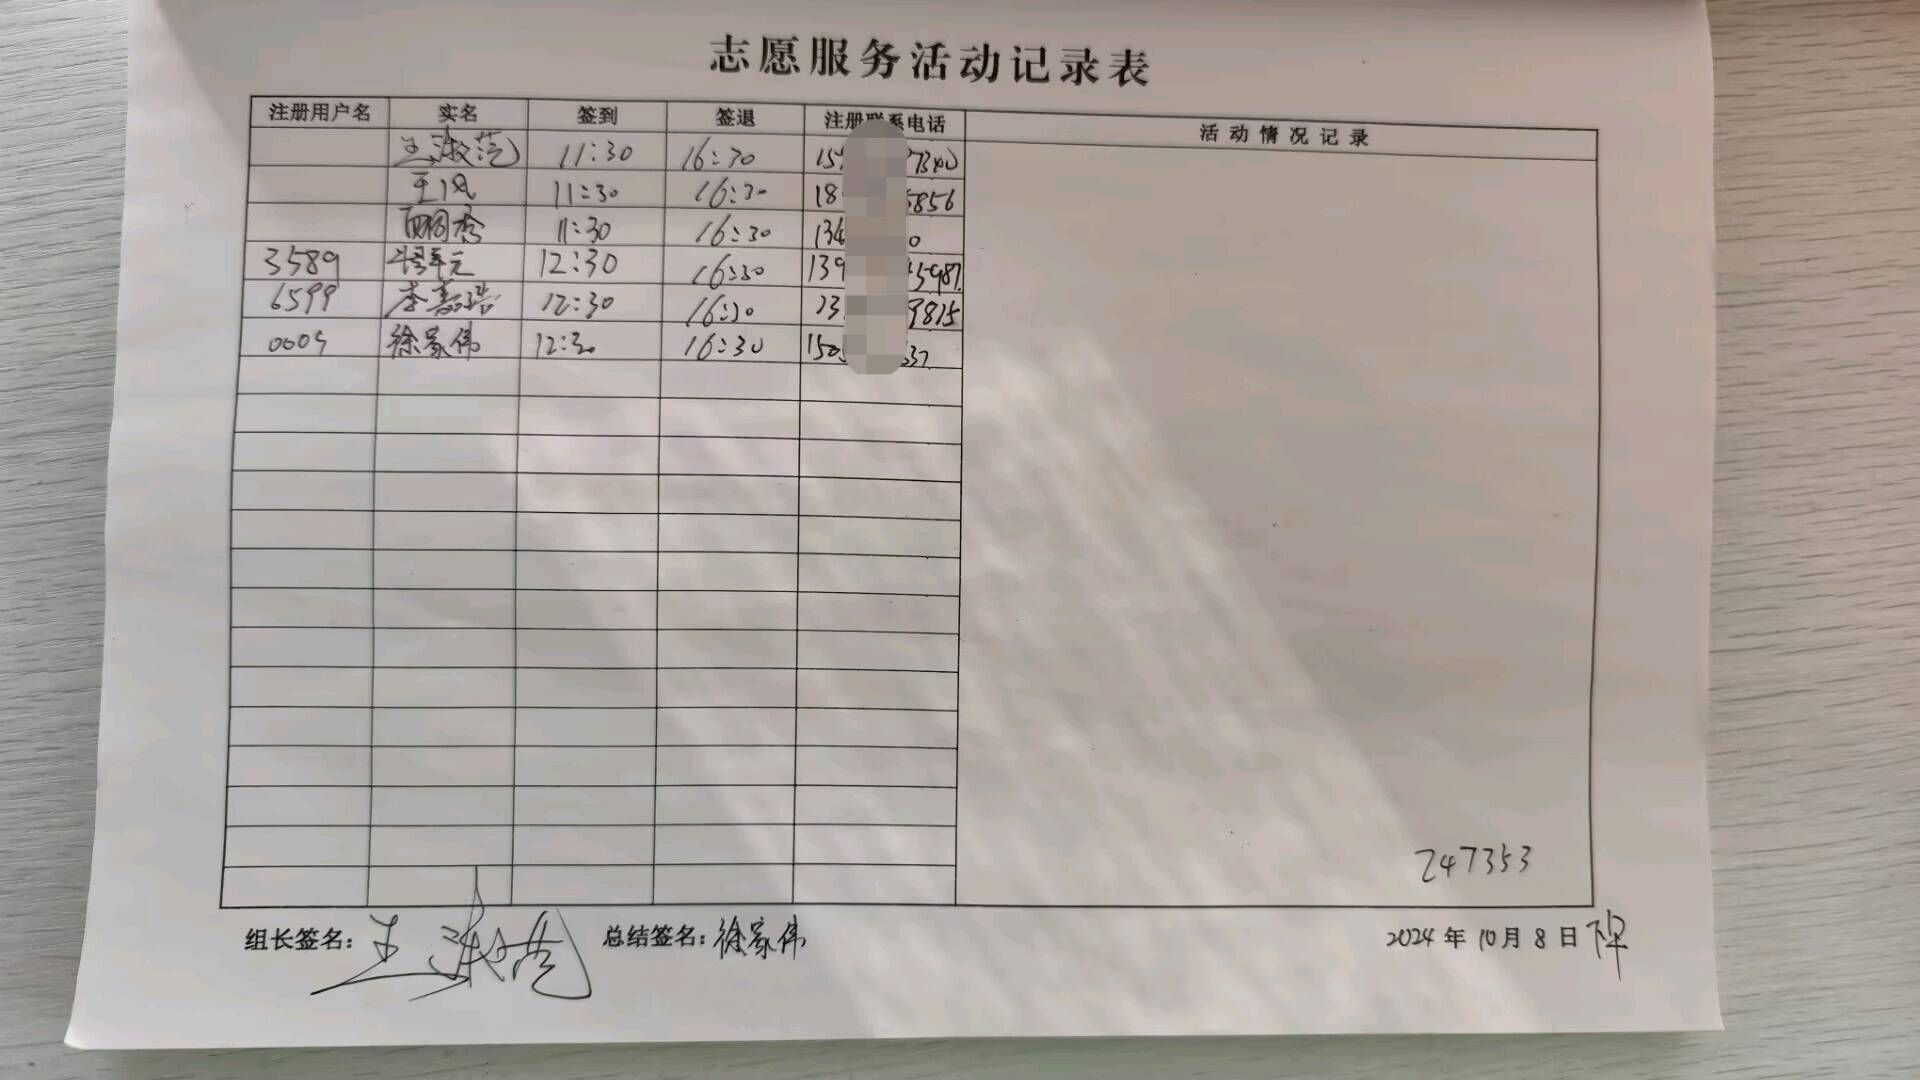 志愿服务活动记录表
注册用户名 实名 签到 签退 注册联系电话 活动情况记录
王淑范 11:30 16:30 15 7340
王凤 11:30 16:30 18 5856
11:30 16:30 134 0
3589 12:30 16:30 139 5987
6599 李嘉浩 12:30 16:30 9815
0005 徐家伟 12:30 16:30 150 337
247353
组长签名: 王淑范 总结签名: 徐家伟 2024年10月8日